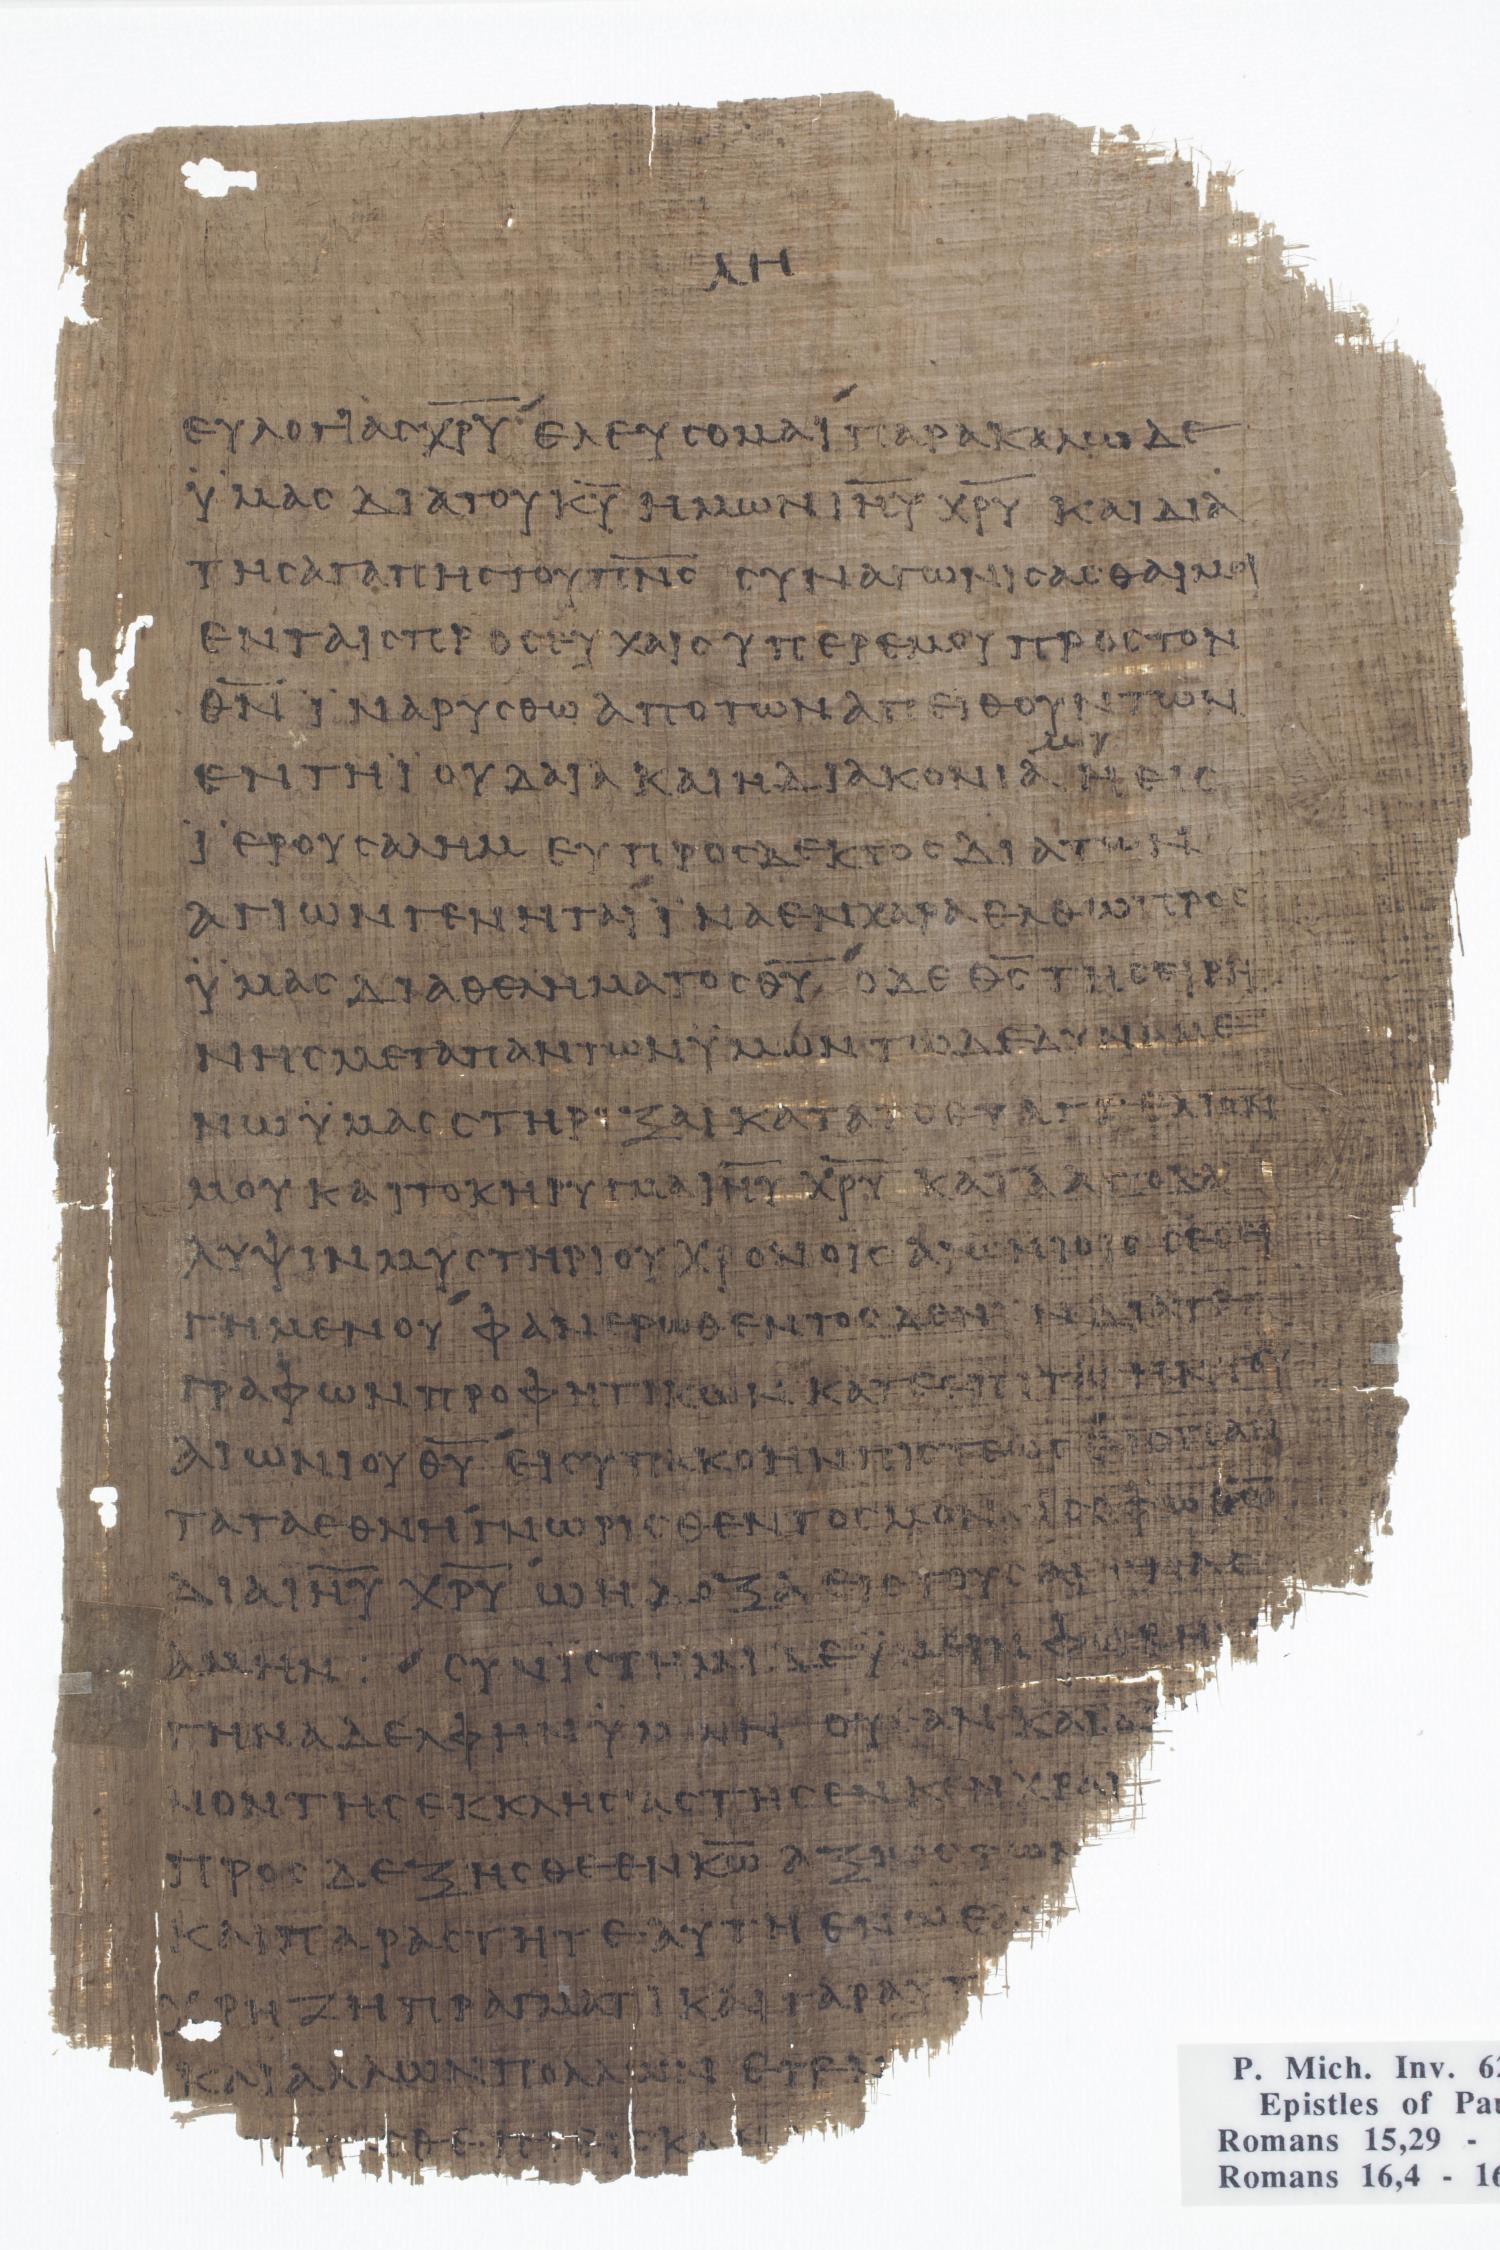 ΛΗ
ΕΥΛΟΓΙΑΣ ΧΡΥ ΕΛΕΥΣΟΜΑΙ ΠΑΡΑΚΑΛΩ ΔΕ
ΫΜΑΣ ΔΙΑ ΤΟΥ ΚΥ ΗΜΩΝ ΙΗΥ ΧΡΥ ΚΑΙ ΔΙΑ
ΤΗΣ ΑΓΑΠΗΣ ΤΟΥ ΠΝΣ ΣΥΝΑΓΩΝΙΣΑΣΘΑΙ ΜΟΙ
ΕΝ ΤΑΙΣ ΠΡΟΣΕΥΧΑΙΣ ΥΠΕΡ ΕΜΟΥ ΠΡΟΣ ΤΟΝ
ΘΝ ΪΝΑ ΡΥΣΘΩ ΑΠΟ ΤΩΝ ΑΠΕΙΘΟΥΝΤΩΝ
ΜΟΥ
ΕΝ ΤΗ ΪΟΥΔΑΙΑ ΚΑΙ Η ΔΙΑΚΟΝΙΑ Η ΕΙΣ
ΪΕΡΟΥΣΑΛΗΜ ΕΥΠΡΟΣΔΕΚΤΟΣ ΔΙΑ ΤΩΝ
ΑΓΙΩΝ ΓΕΝΗΤΑΙ ΪΝΑ ΕΝ ΧΑΡΑ ΕΛΘΩ ΠΡΟΣ
ΫΜΑΣ ΔΙΑ ΘΕΛΗΜΑΤΟΣ ΘΥ Ο ΔΕ ΘΣ ΤΗΣ ΕΙΡΗ
ΝΗΣ ΜΕΤΑ ΠΑΝΤΩΝ ΫΜΩΝ ΤΩ ΔΕ ΔΥΝΑΜΕ
ΝΩ ΫΜΑΣ ΣΤΗΡΙΞΑΙ ΚΑΤΑ ΤΟ ΕΥΑΓΓΕΛΙΟΝ
ΜΟΥ ΚΑΙ ΤΟ ΚΗΡΥΓΜΑ ΙΗΥ ΧΡΥ ΚΑΤΑ ΑΠΟΚΑ
ΛΥΨΙΝ ΜΥΣΤΗΡΙΟΥ ΧΡΟΝΟΙΣ ΑΙΩΝΙΟΙΣ ΣΕΣΕΙ
ΓΗΜΕΝΟΥ ΦΑΝΕΡΩΘΕΝΤΟΣ ΔΕ ΝΥΝ ΔΙΑ ΤΕ
ΓΡΑΦΩΝ ΠΡΟΦΗΤΙΚΩΝ ΚΑΤ ΕΠΙΤΑΓΗΝ ΤΟΥ
ΑΙΩΝΙΟΥ ΘΥ ΕΙΣ ΥΠΑΚΟΗΝ ΠΙΣΤΕΩΣ ΕΙΣ ΠΑΝ
ΤΑ ΤΑ ΕΘΝΗ ΓΝΩΡΙΣΘΕΝΤΟΣ ΜΟΝΩ ΣΟΦΩ ΘΩ
ΔΙΑ ΙΗΥ ΧΡΥ Ω Η ΔΟΞΑ ΕΙΣ ΤΟΥΣ ΑΙΩΝΑΣ
ΑΜΗΝ : ΣΥΝΙΣΤΗΜΙ ΔΕ ΫΜΕΙΝ ΦΟΙΒΗ
ΤΗΝ ΑΔΕΛΦΗΝ ΫΜΩΝ ΟΥΣΑΝ ΚΑΙ ΔΙ
ΝΟΝ ΤΗΣ ΕΚΚΛΗΣΙΑΣ ΤΗΣ ΕΝ ΚΕΝΧΡΑΙ
ΠΡΟΣΔΕΞΗΣΘΕ ΕΝ ΚΩ ΑΞΙΩΣ ΤΩΝ
ΚΑΙ ΠΑΡΑΣΤΗΤΕ ΑΥΤΗ ΕΝ Ω ΕΑ
ΧΡΗΖΗ ΠΡΑΓΜΑΤΙ ΚΑΙ ΓΑΡ ΑΥΤ
ΚΑΙ ΑΛΛΩΝ ΠΟΛΛΩΝ ΕΓΕΝ
ΣΘΕ ΠΡΙΣΚΑ
P. Mich. Inv. 62
Epistles of Pau
Romans 15,29 -
Romans 16,4 - 16